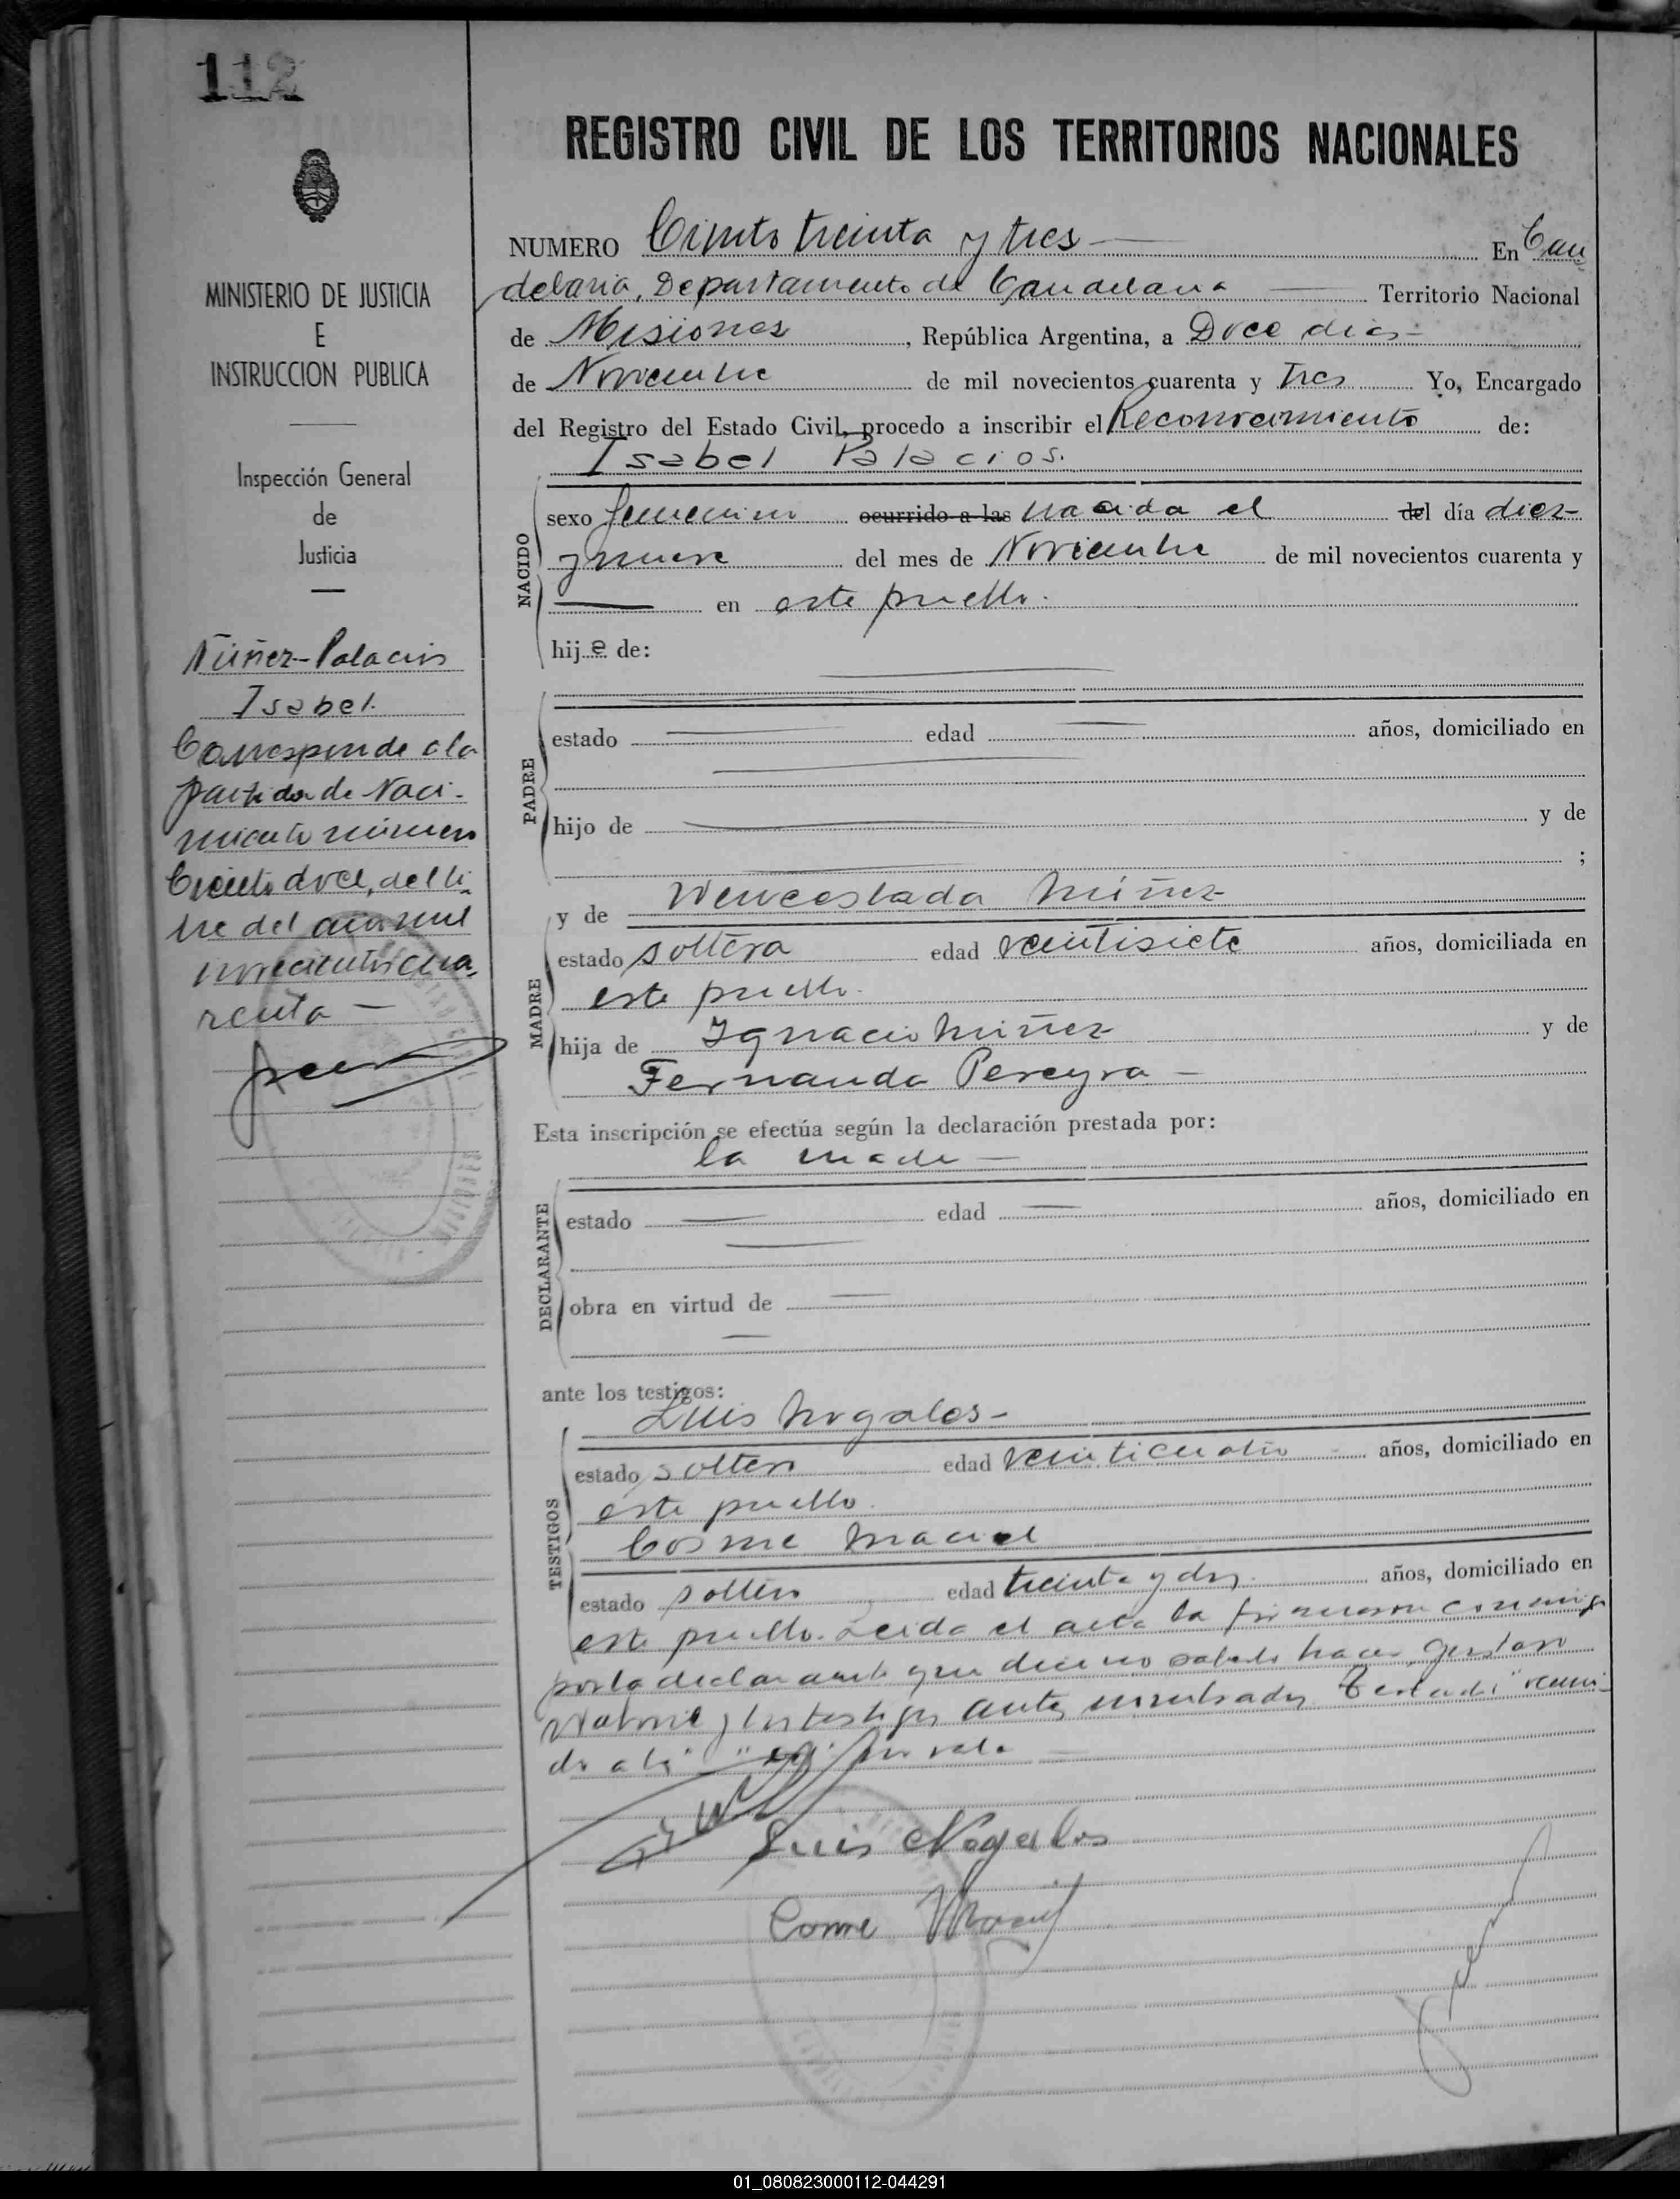 112
REGISTRO CIVIL DE LOS TERRITORIOS NACIONALES
MINISTERIO DE JUSTICIA
E
INSTRUCCION PUBLICA
Inspección General
de
Justicia
Núñez-Palacios
Isabel.
Corresponde a la
partida de Naci-
miento número
Ciento doce, del li-
bro del año mil
novecientos cua-
renta —
NUMERO Ciento treinta y tres — En Can
delaria, Departamento de Candelaria — Territorio Nacional
de Misiones, República Argentina, a Doce dias
de Noviembre de mil novecientos cuarenta y Tres Yo, Encargado
del Registro del Estado Civil, procedo a inscribir el Reconocimiento de:
Isabel Palacios.
NACIDO
sexo femenino ocurrido a las nacida el del día diez
y nueve del mes de Noviembre de mil novecientos cuarenta y
— en este pueblo.
hij de:
PADRE
estado — edad — años, domiciliado en
hijo de — y de
;
y de Wenceslada Núñez
MADRE
estado soltera edad veintisiete años, domiciliada en
este pueblo.
hija de Ignacio Núñez y de
Fernanda Pereyra —
Esta inscripción se efectúa según la declaración prestada por:
la madre —
DECLARANTE
estado — edad — años, domiciliado en
obra en virtud de —
ante los testigos:
Luis Nogales -
TESTIGOS
estado soltero edad veinticuatro años, domiciliado en
este pueblo.
Cosme Maciel
estado soltero edad treinta y dos. años, domiciliado en
este pueblo. Leida el acta la firmaron conmigo
por la declarante que dice no saber hacer,
y los testigos antes nombrados
no vale —
Luis Nogales
Cosme Maciel
01_080823000112-044291